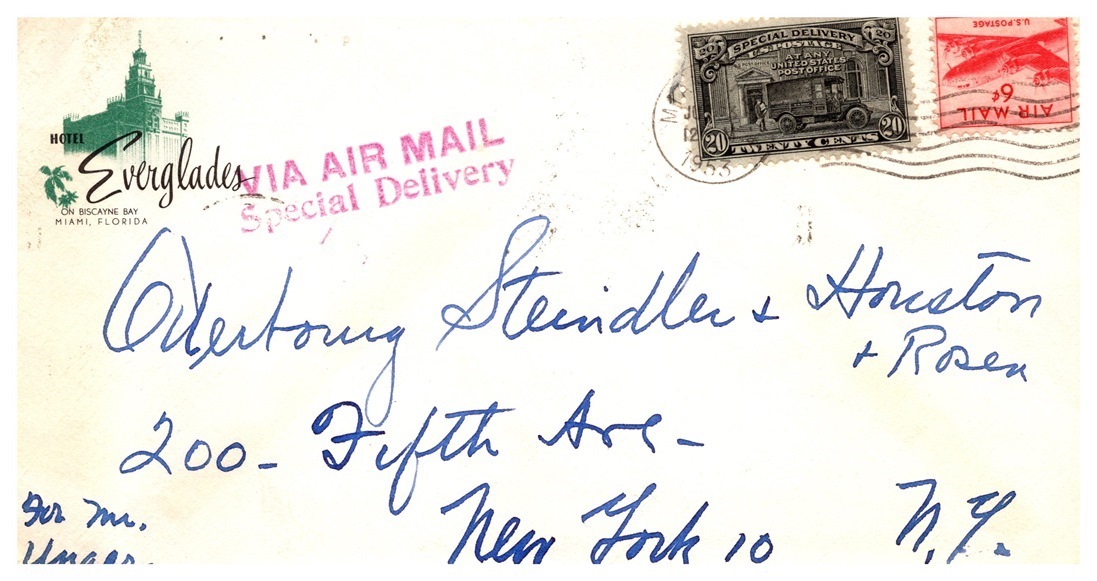 HOTEL
Everglades
ON BISCAYNE BAY
MIAMI, FLORIDA
VIA AIR MAIL
Special Delivery
SPECIAL DELIVERY
U.S. POSTAGE
20 20
AT ANY
UNITED STATES
POST OFFICE
20 20
TWENTY CENTS
U.S. POSTAGE
6¢
AIR MAIL
1953
Steindler + Houston
+ Rosen
200 - Fifth Ave -
New York 10 N.Y.
For Mr.
Unger